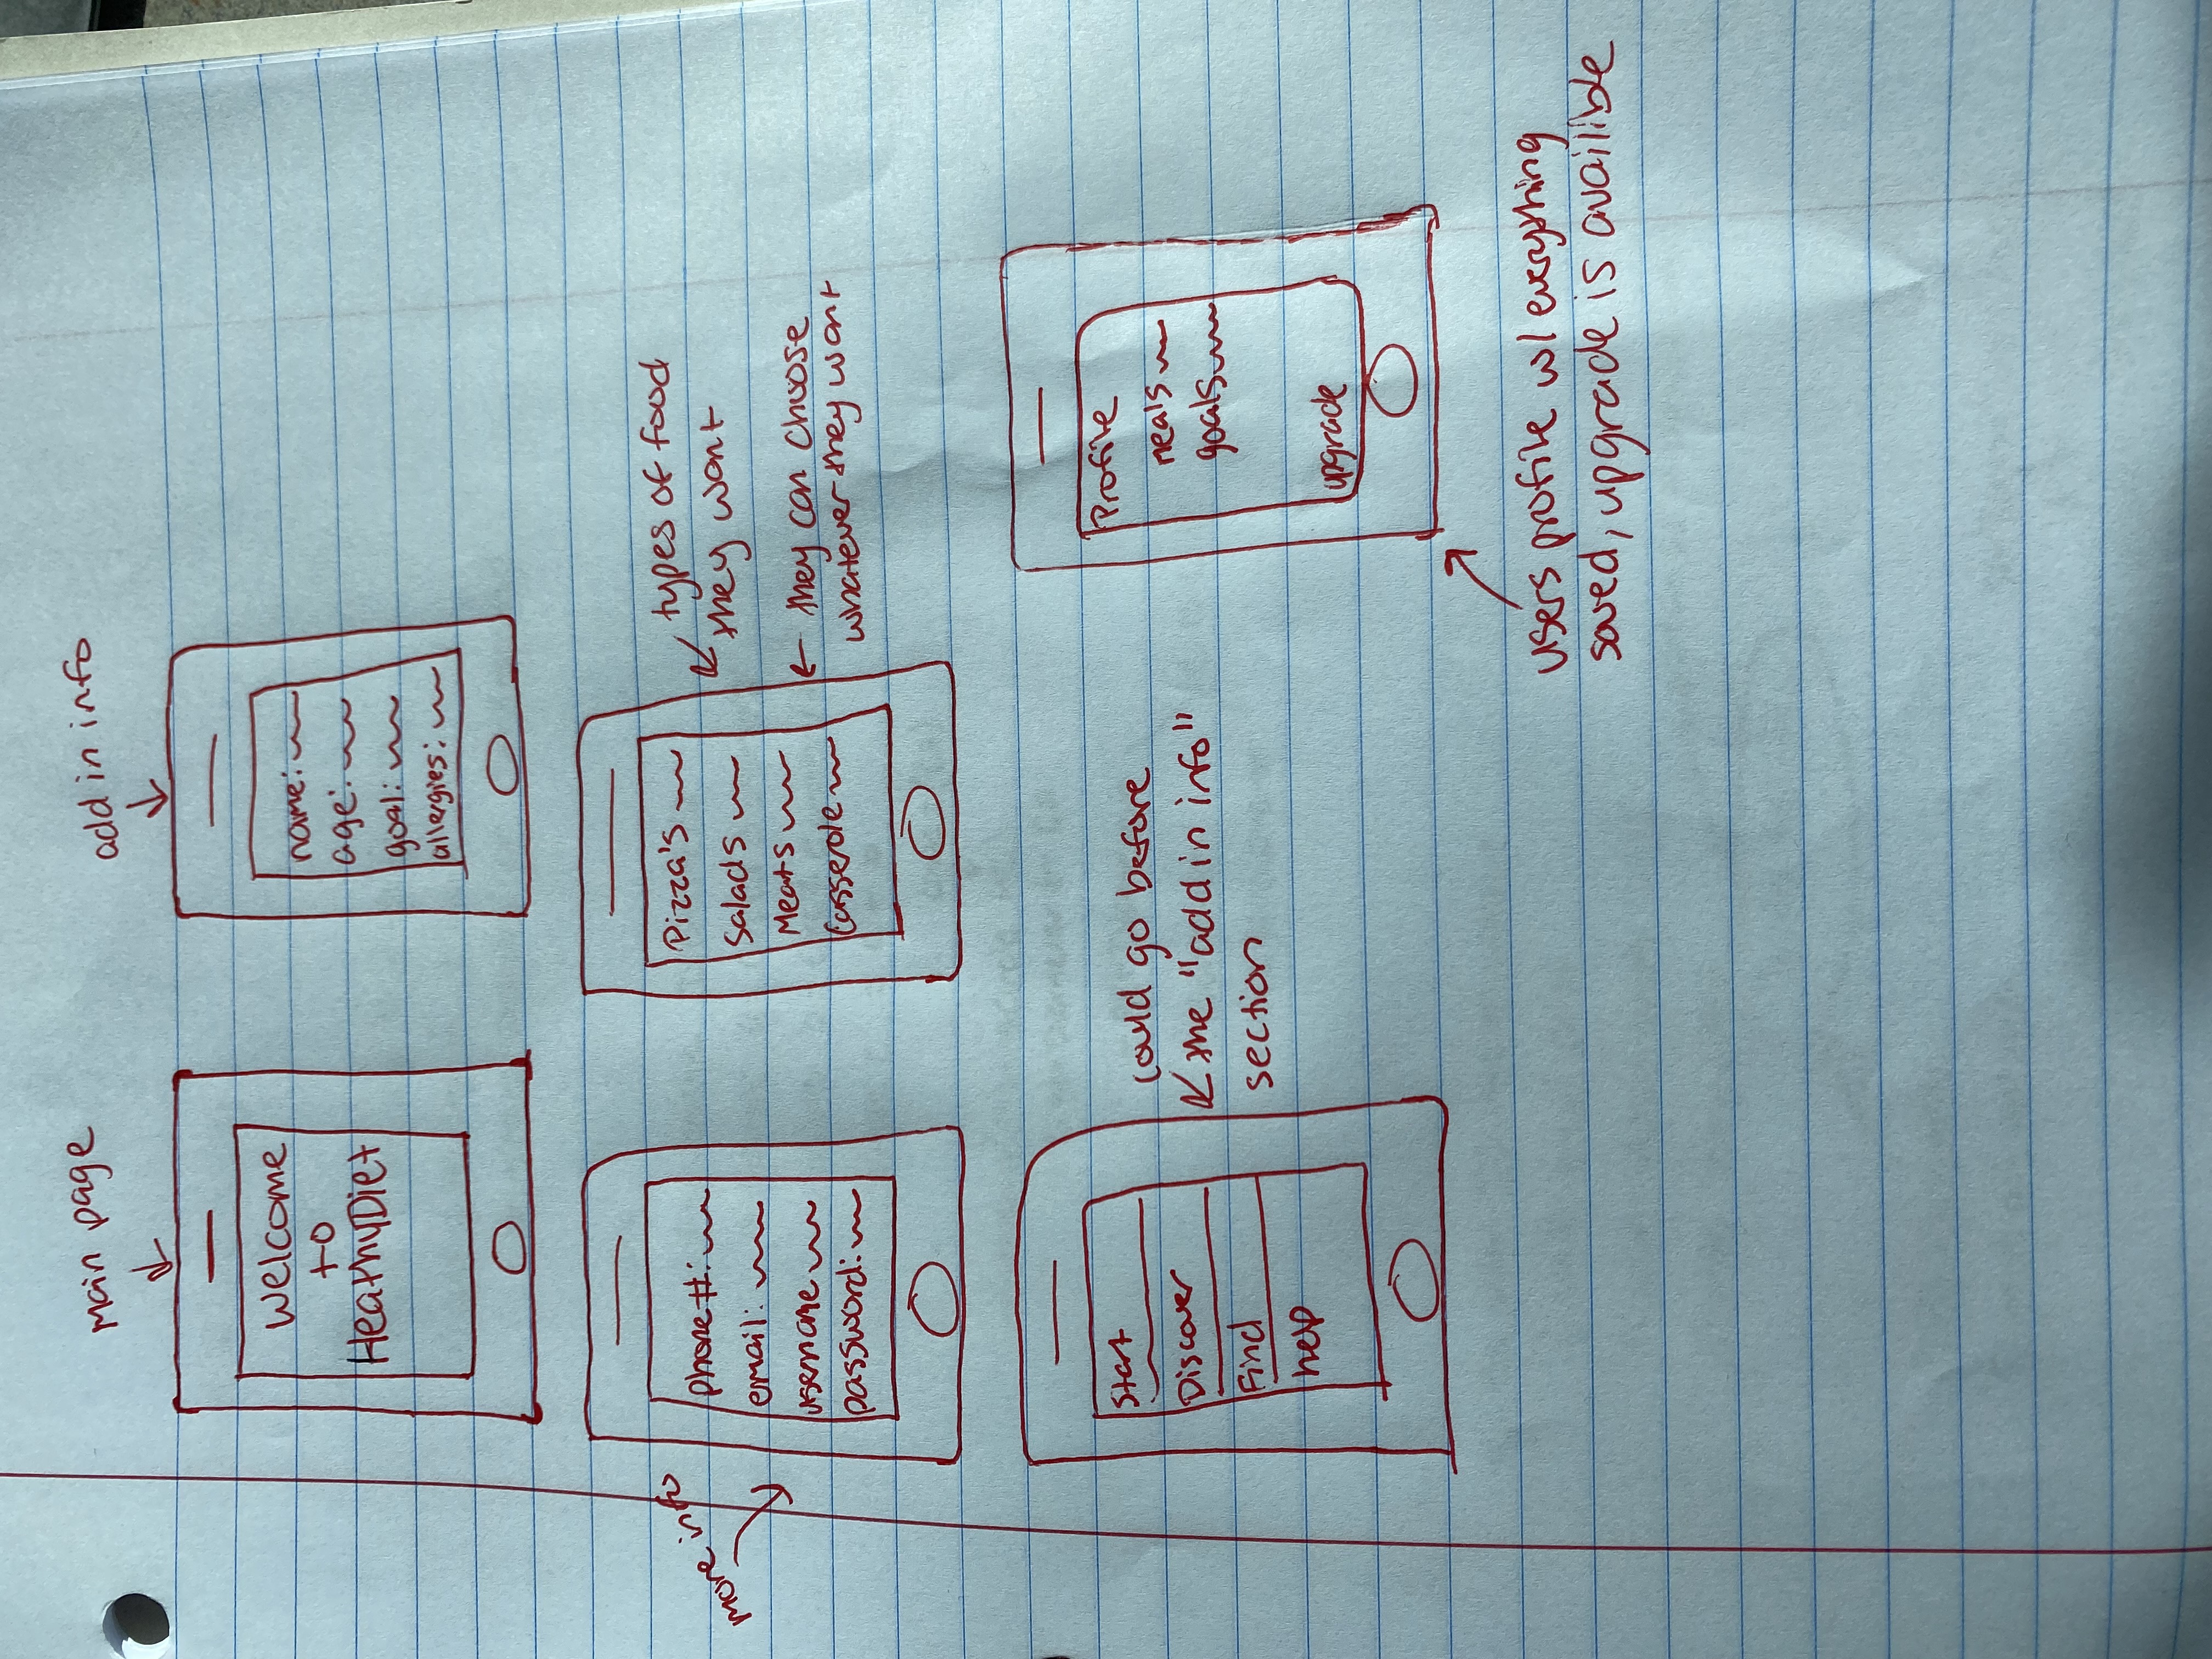 Main page
Welcome
to
HeathyDiet
add in info
name:
age:
goal:
allergies:
more info
phone #:
email:
username
password:
Pizza's
Salads
Meats
Casserole
types of food
they want
they can choose
whatever they want
Start
Discover
Find
help
could go before
the "add in info"
section
Profile
meals
goals
upgrade
users profile w/ everything
saved, upgrade is availible